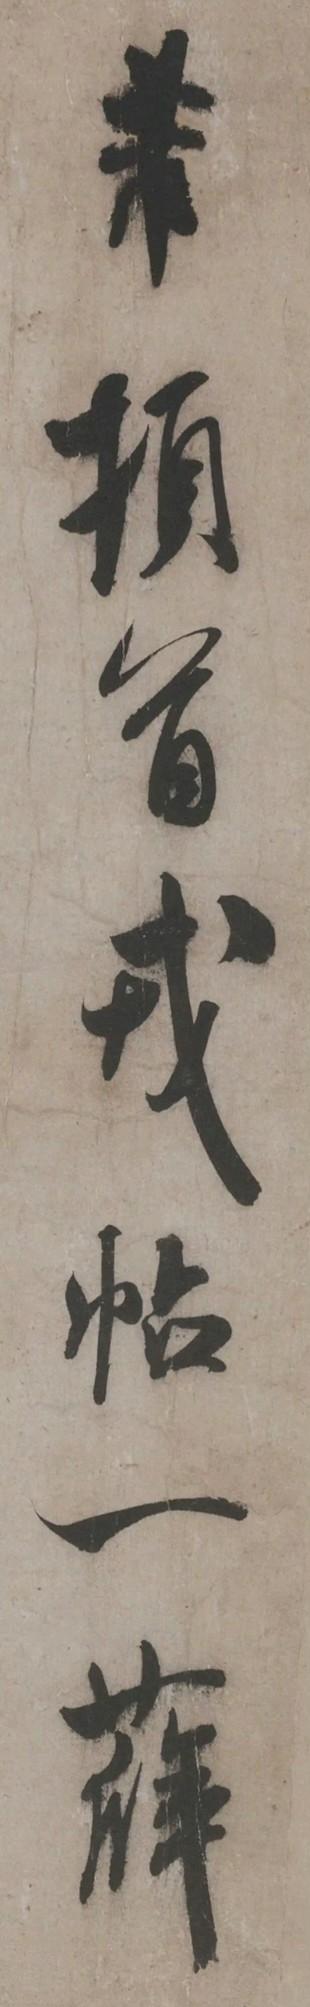 芾頓首戎帖一薛